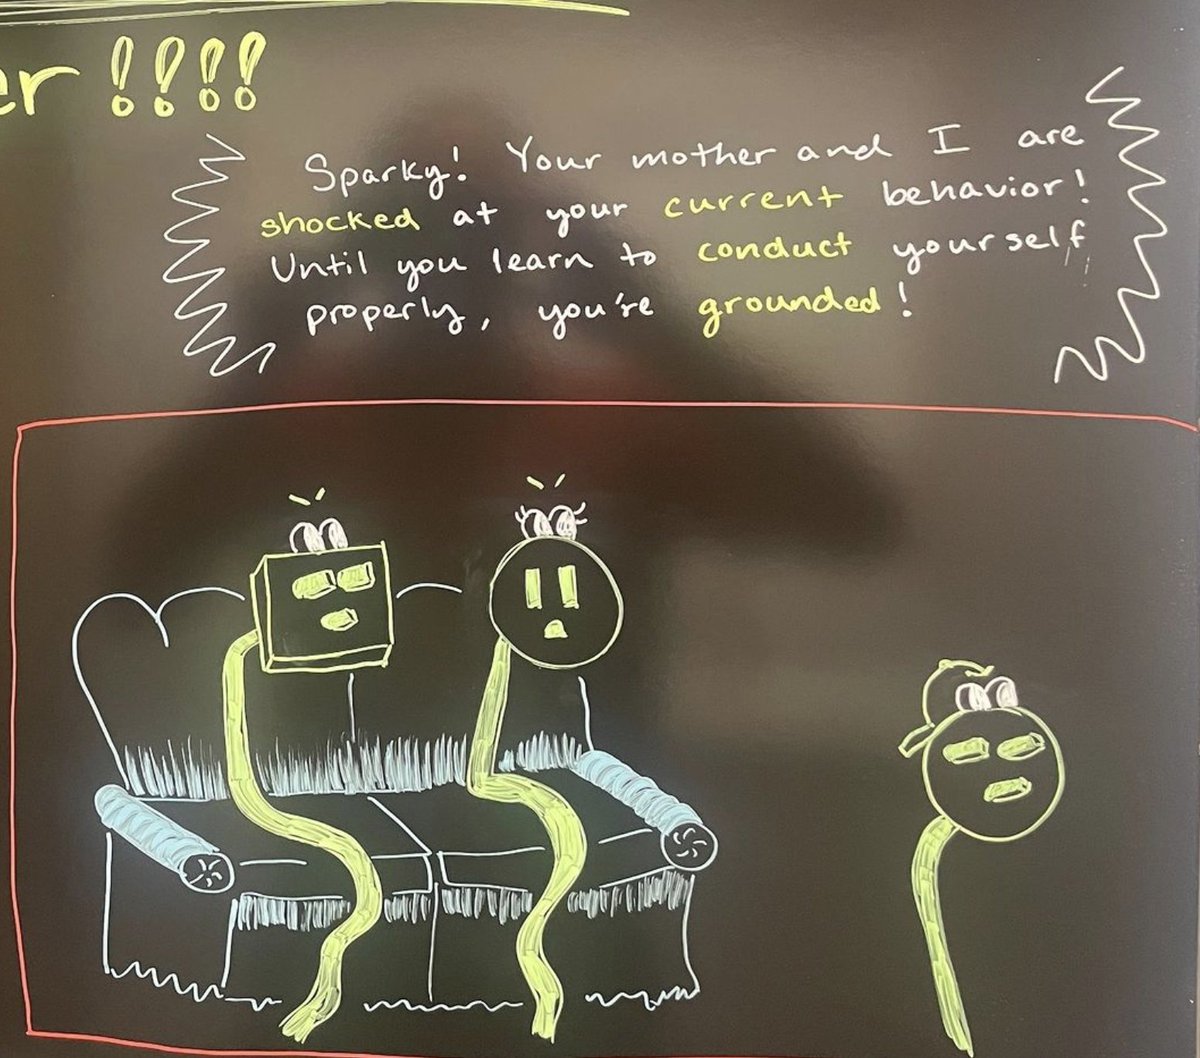 er !!!!
Sparky! Your mother and I are
shocked at your current behavior!
Until you learn to conduct yourself
properly, you're grounded!